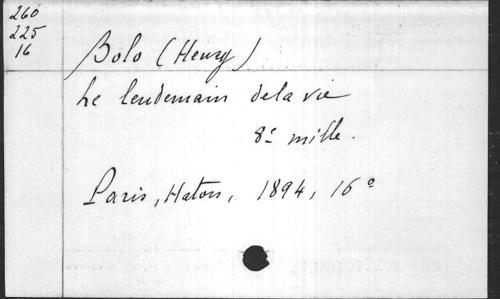 260
225
16
Bolo (Henry)
Le lendemain de la vie
8e mille.
Paris, Haton, 1894, 16°